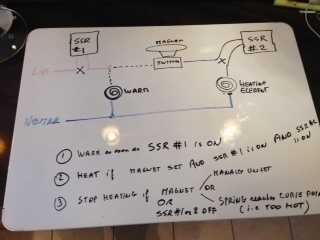 SSR
#1
MAGNET
SSR
#2
SWITCH
LIVE
WARM
HEATING
ELEMENT
NEUTRAL
① WARM as soon as SSR #1 IS ON
② HEAT if MAGNET SET AND SSR #1 is ON AND SSR #2 is ON
③ STOP HEATING if MAGNET
OR
SSR #1 or 2 OFF
MANUALLY UNSET
OR
SPRING reaches CURIE POINT
(i.e TOO HOT)